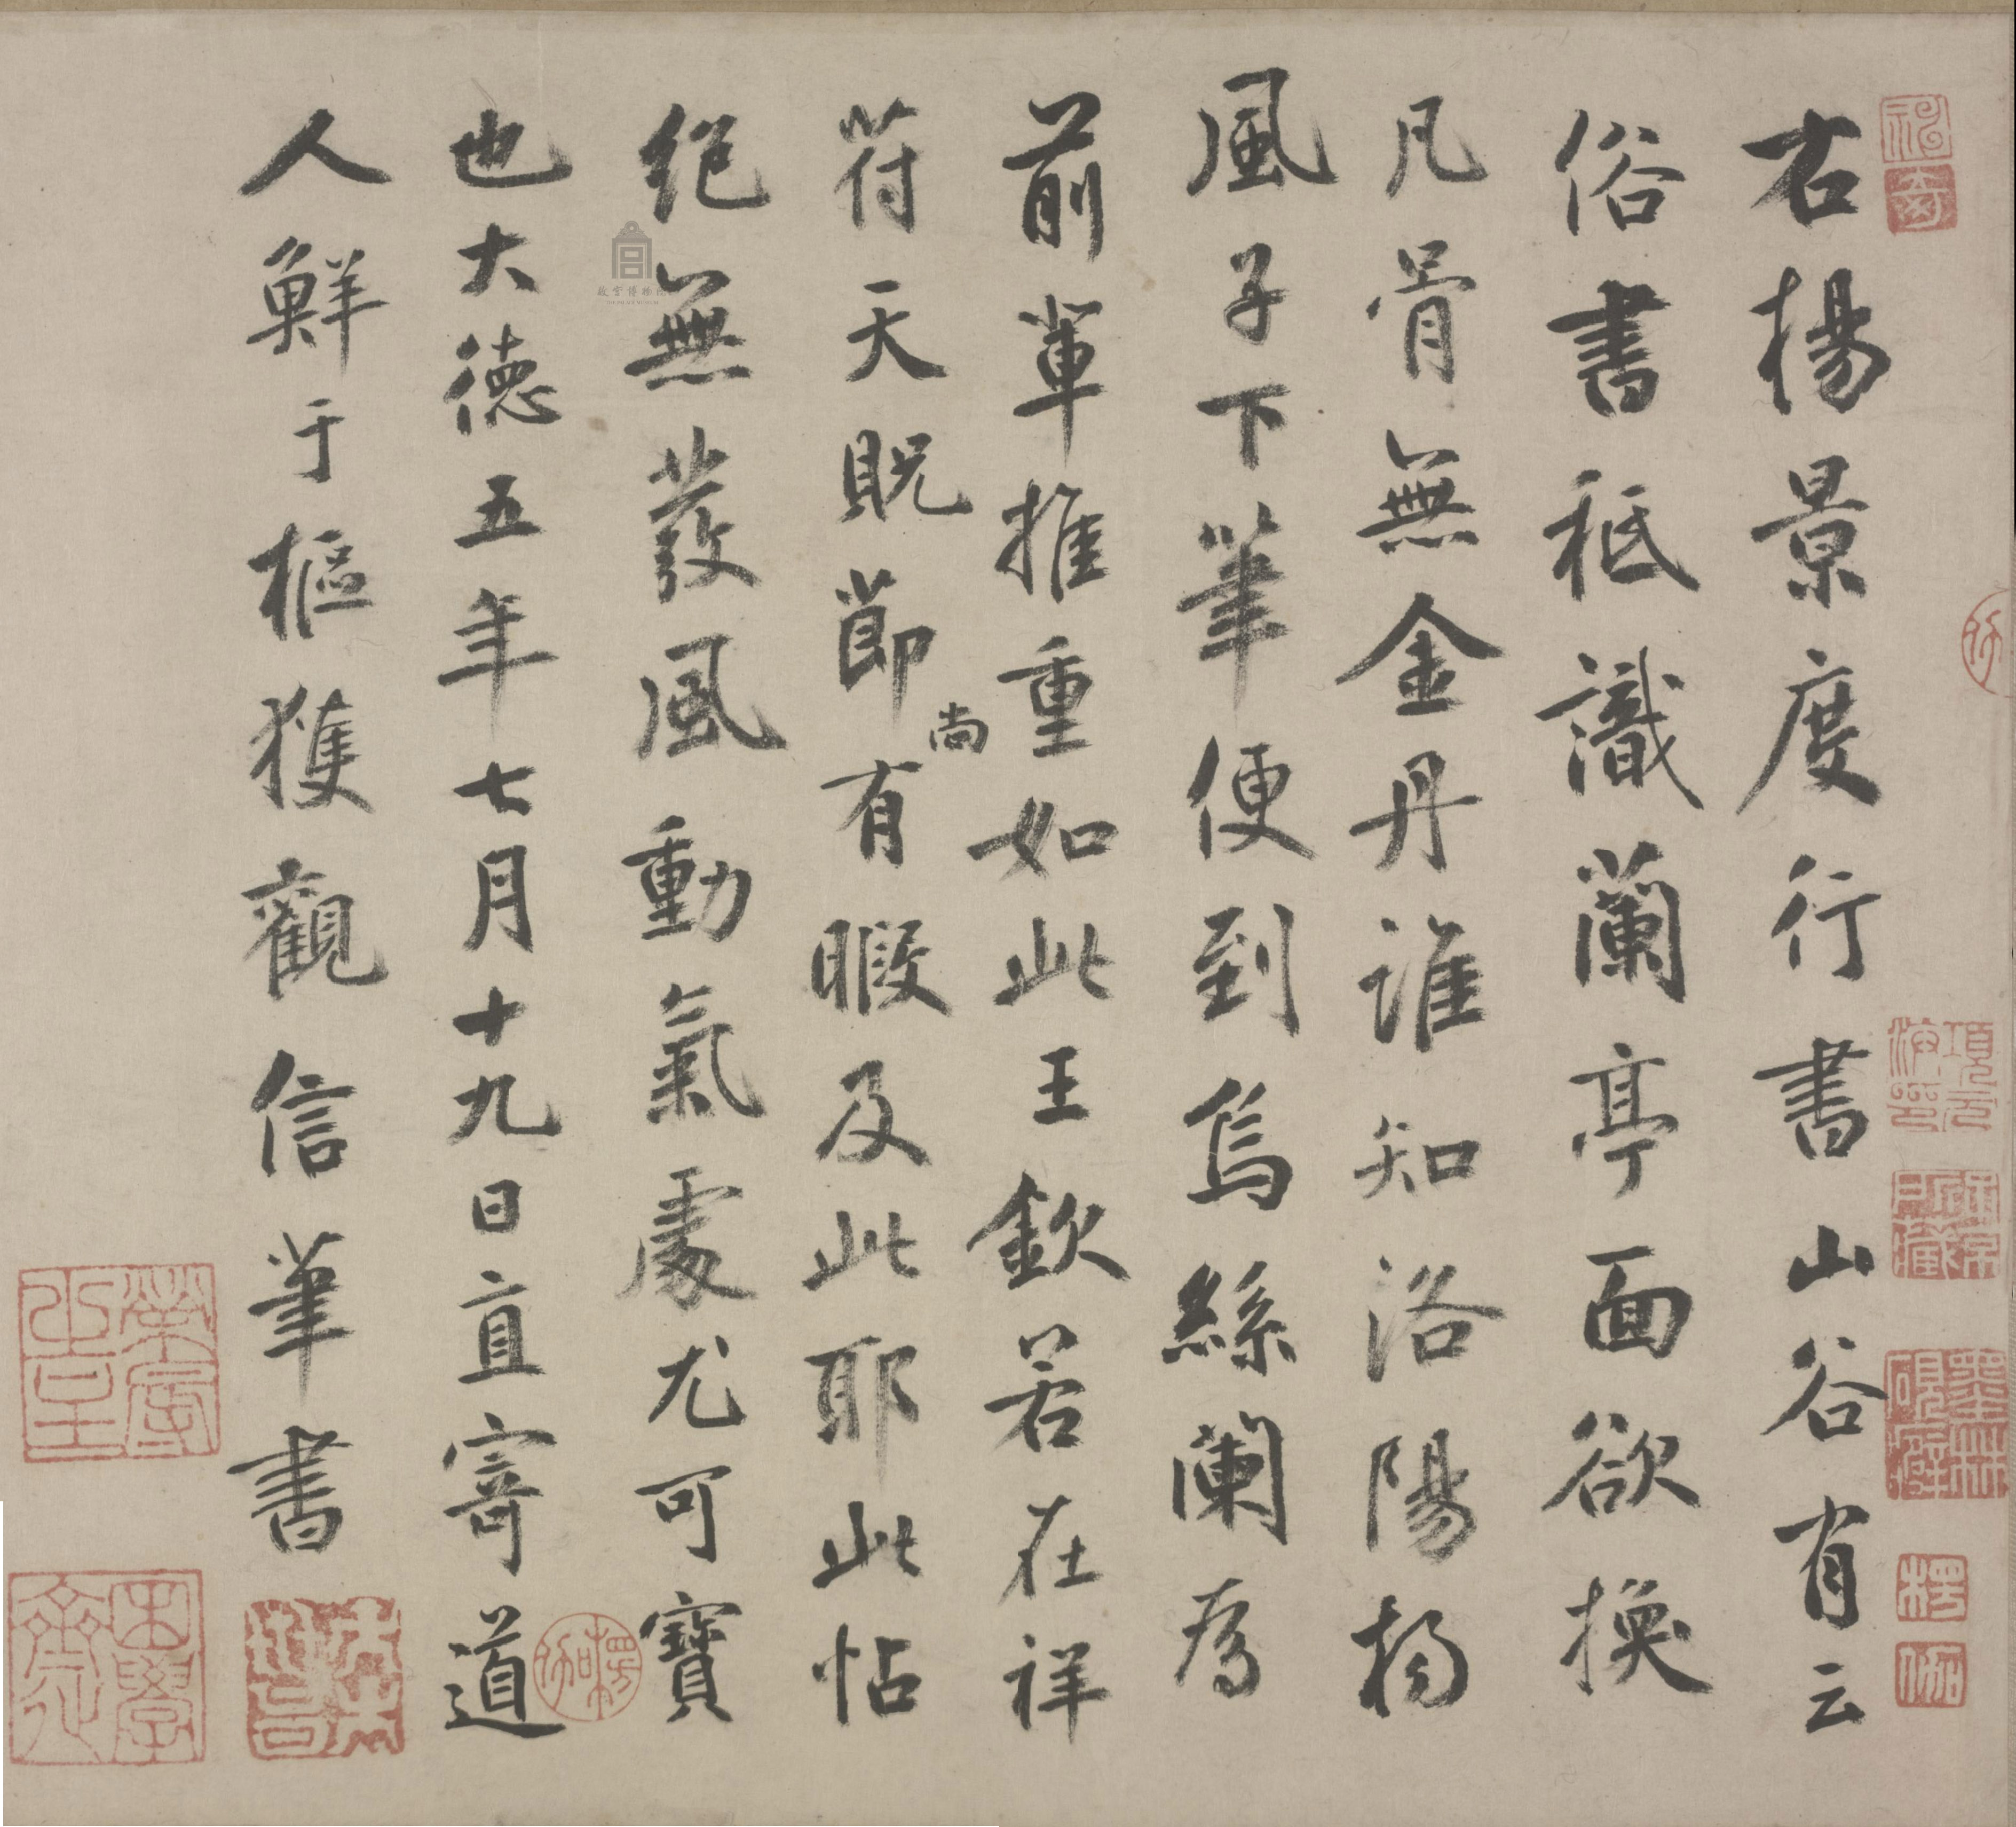 右楊景度行書山谷有云
俗書秪識蘭亭面欲換
凡骨無金丹誰知洛陽楊
風子下筆便到烏絲闌為
前輩推重如此王欽若在祥
苻天貺節尚有暇及此耶此帖
絕無蕟風動氣處尤可寶
也大德五年七月十九日直寄道
人鮮于樞獲觀信筆書
項元
墨林
硯癖
楞
伽
困學
齋
故宮博物院